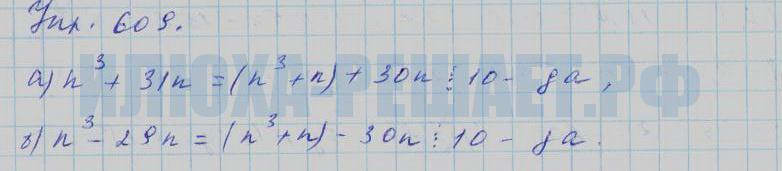 Упр. 609.
а) n³ + 31n = (n³+n) + 30n ⋮ 10 - да,
б) n³ - 29n = (n³+n) - 30n ⋮ 10 - да.
ИЛЮХА-РЕШАЕТ.РФ